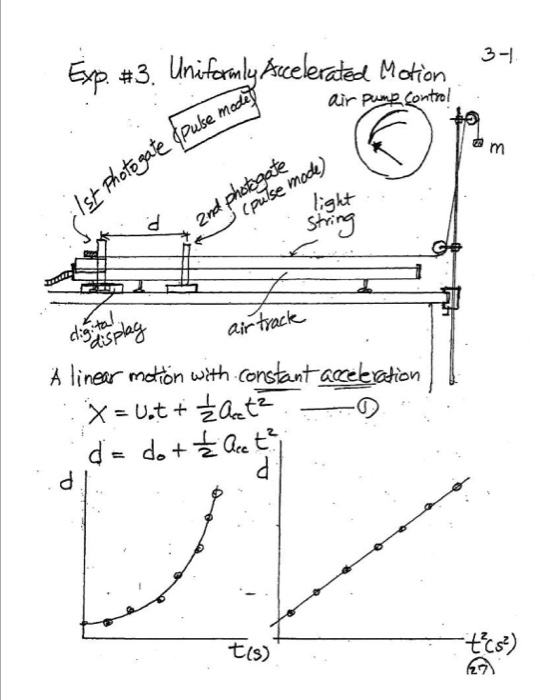 3-1
Exp. #3. Uniformly Accelerated Motion
air pump control
1st photogate (pulse mode)
m
2nd photogate
(pulse mode)
light
string
d
digital
display
air track
A linear motion with constant acceleration
x = v₀t + ½ a_cc t² —— ①
d = d₀ + ½ a_cc t²
d
d
t(s)
t²(s²)
27